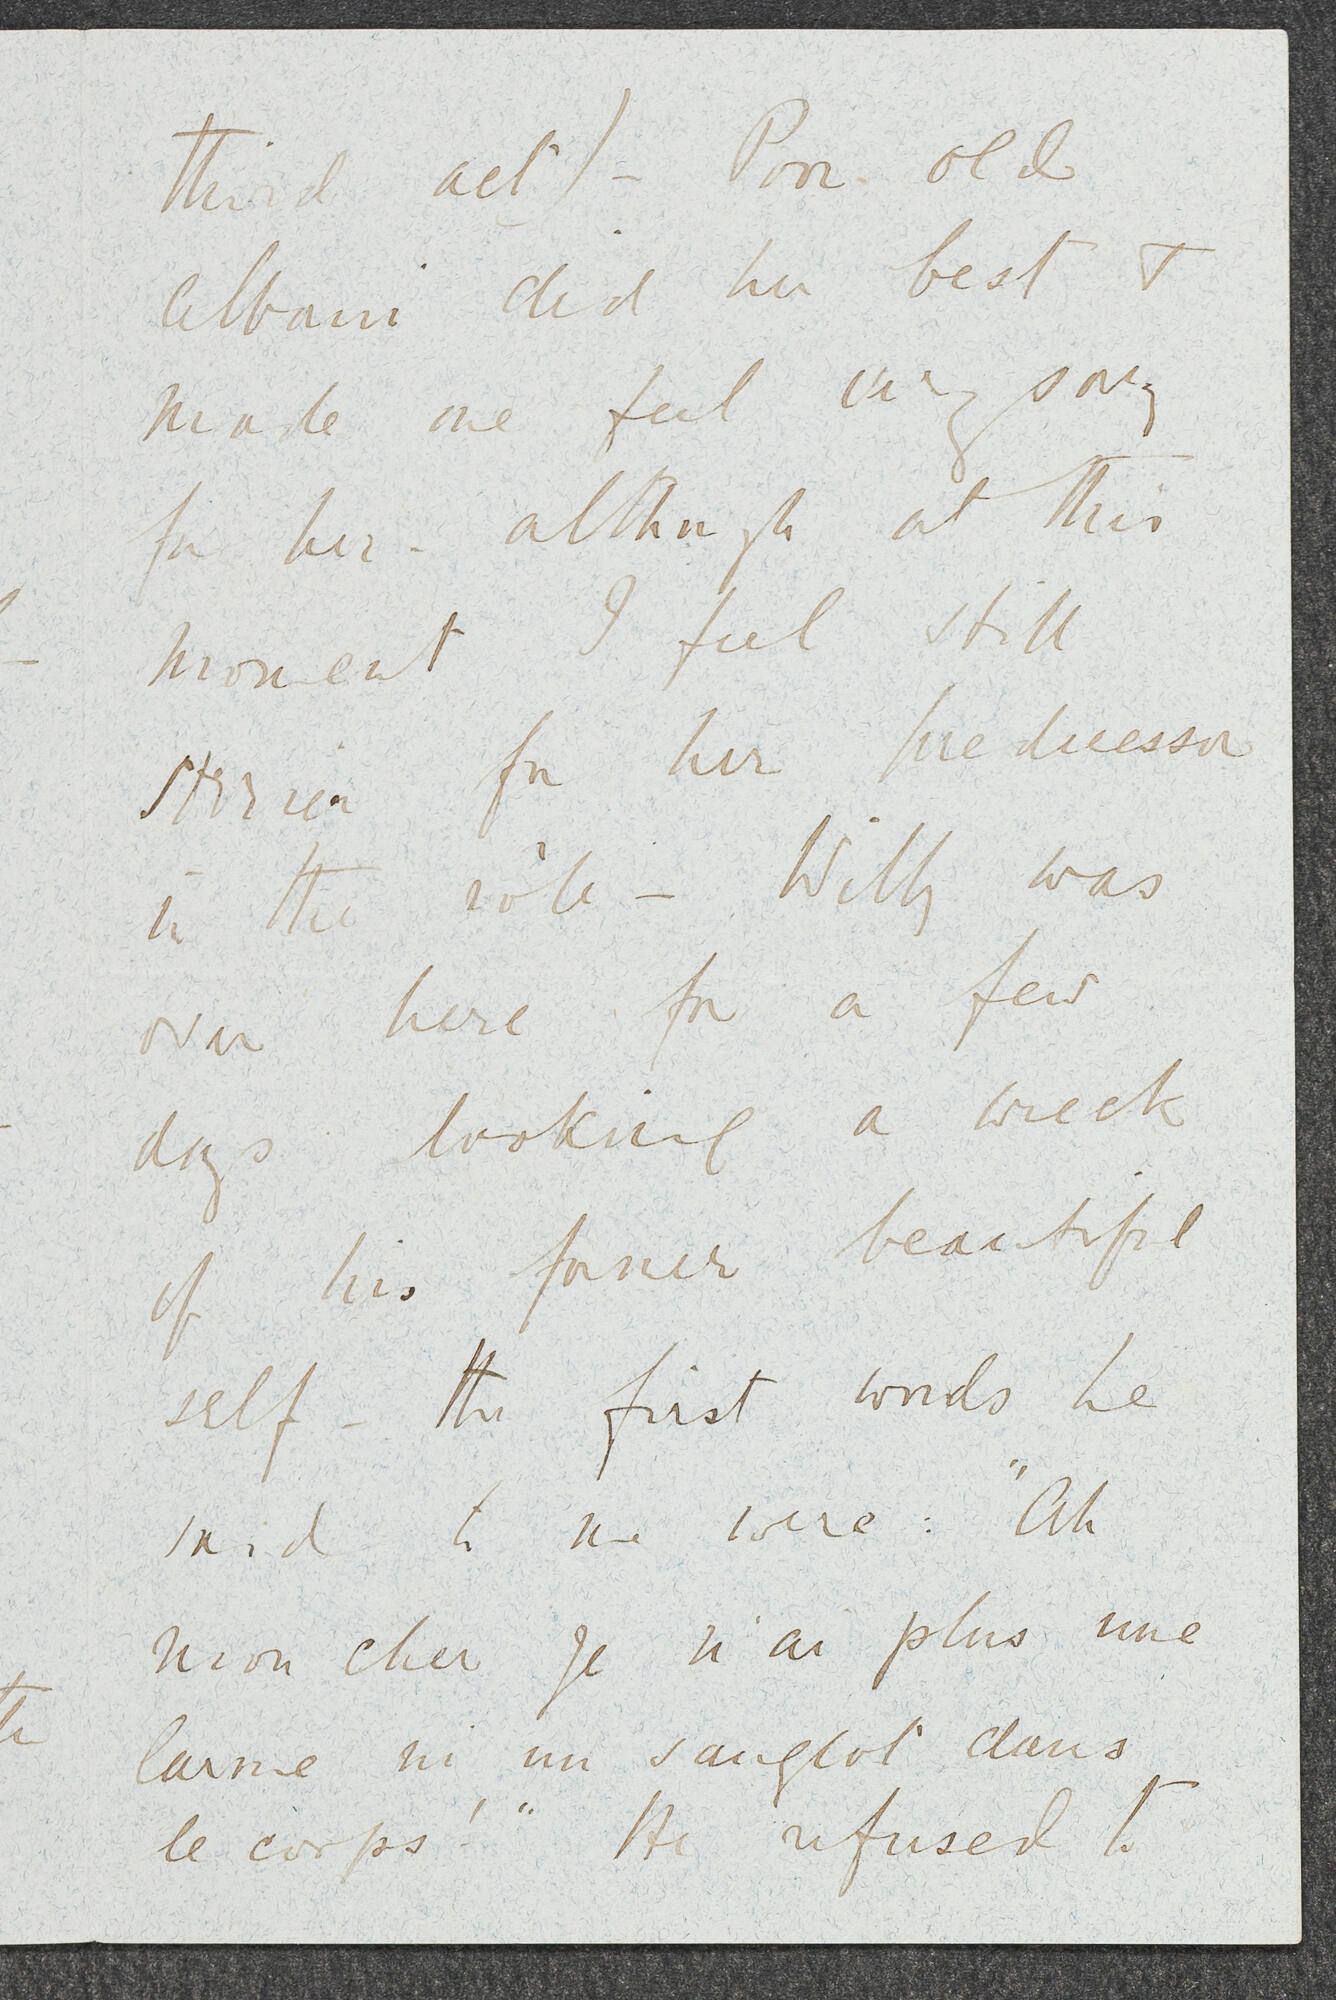 third act)- Poor old
Albani did her best &
made one feel very sorry
for her - although at this
moment I feel still
sorrier for her predecessor
in the rôle - Willy was
over here for a few
days looking a wreck
of his former beautiful
self - the first words he
said to me were : "Ah
mon cher je n'ai plus une
larme ni un sanglot dans
le corps!" He refused to